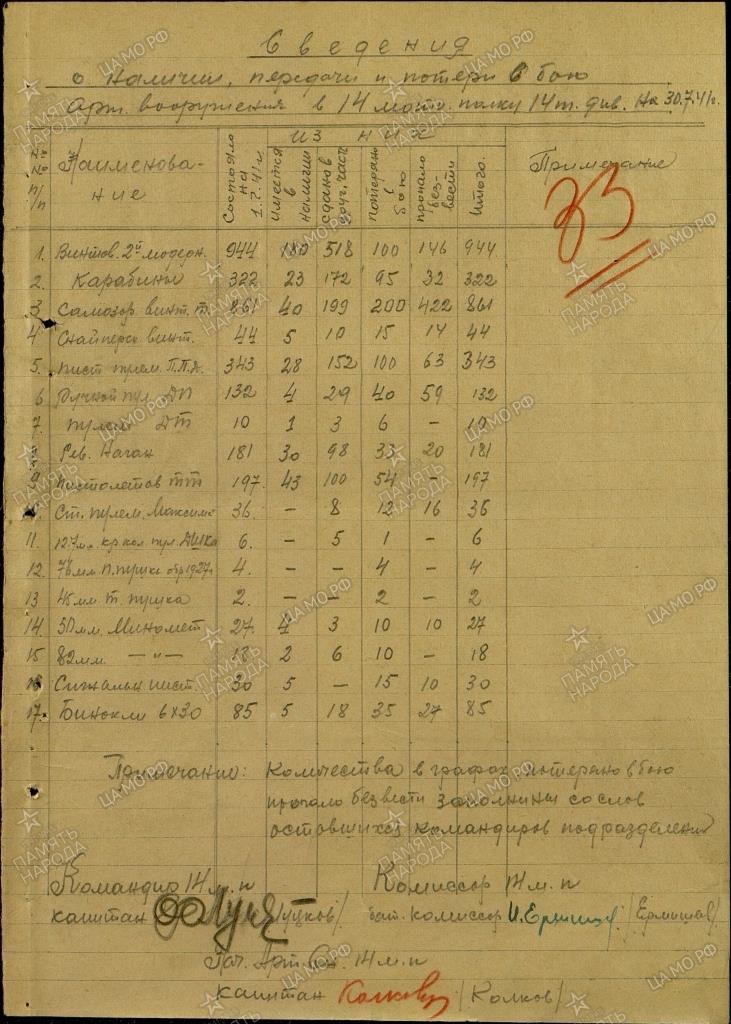 Сведения
о наличии, передачи и потери в бою
Арт. вооружения в 14 мото. полку 14 т. див. на 30.7.41г.
№№ п/п Наименование Состояло на 1.7.41г. из них Имеется в наличии сдано в друг. част. потеряно в бою пропало без-вести Итого. Примечание
33
1. Винтов. 2й модерн. 944 180 518 100 146 944
2. Карабины 322 23 172 95 32 322
3 Самозар. винт. т. 861 40 199 200 422 861
4 Снайперс винт. 44 5 10 15 14 44
5. Пист пулем. П.П.Д. 343 28 152 100 63 343
6 Ручной пул. ДП 132 4 29 40 59 132
7. пулем ДТ 10 1 3 6 – 10
8 Рев. Наган 181 30 98 33 20 181
9. Пистолетов ТТ 197. 43 100 54 – 197
10. Ст. пулем. Максима 36. – 8 12 16 36
11. 12,7 мм. кр кал. пул. ДШКа 6. – 5 1 – 6
12. 76 мм П. пушка обр 1927г 4. – – 4 – 4
13 45 мм. т. пушка 2. – – 2 – 2
14. 50 мм. Миномет 27. 4 3 10 10 27
15 82 мм. –"– 18 2 6 10 – 18
16 Сигнальн пист. 30 5 – 15 10 30
17. Бинокли 6х30 85 5 18 35 27 85
Примечание: Количества в графах потеряно в бою
пропало безвести заполнины со слов
оставшихся командиров подразделений
Командир 14 м.п Комиссар 14 м.п
капитан /Луцков/ бат. комиссар И. Ермишев /Ермишев/
Нач. Арт. Сн. 14 м.п
капитан Колков /Колков/
ПАМЯТЬ НАРОДА
ЦАМО.РФ